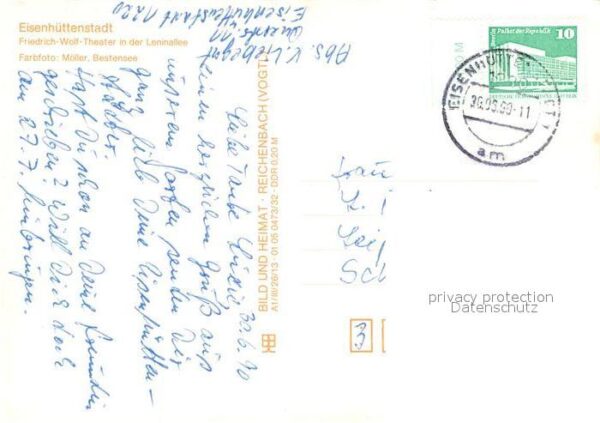 Eisenhüttenstadt
Friedrich-Wolf-Theater in der Leninallee
Farbfoto: Möller, Bestensee
Abs. K. Liebegut
Eisenhüttenstadt 1220
Liebe Tante Luzie 30.6.90
Einen herzlichen Gruß aus
unserem Garten senden Dir
ganz lieb Deine Eisenhütten-
städter.
Hast Du schon an Deine Freundin
geschrieben? Will Dich doch
am 27.7. hinbringen.
BILD UND HEIMAT · REICHENBACH (VOGTL)
A1/III/26/13 · 01 05 0473/32 · DDR 0,20 M
Palast der Republik 10
EISENHÜTTENSTADT
-11
am
Frau
3
privacy protection
Datenschutz